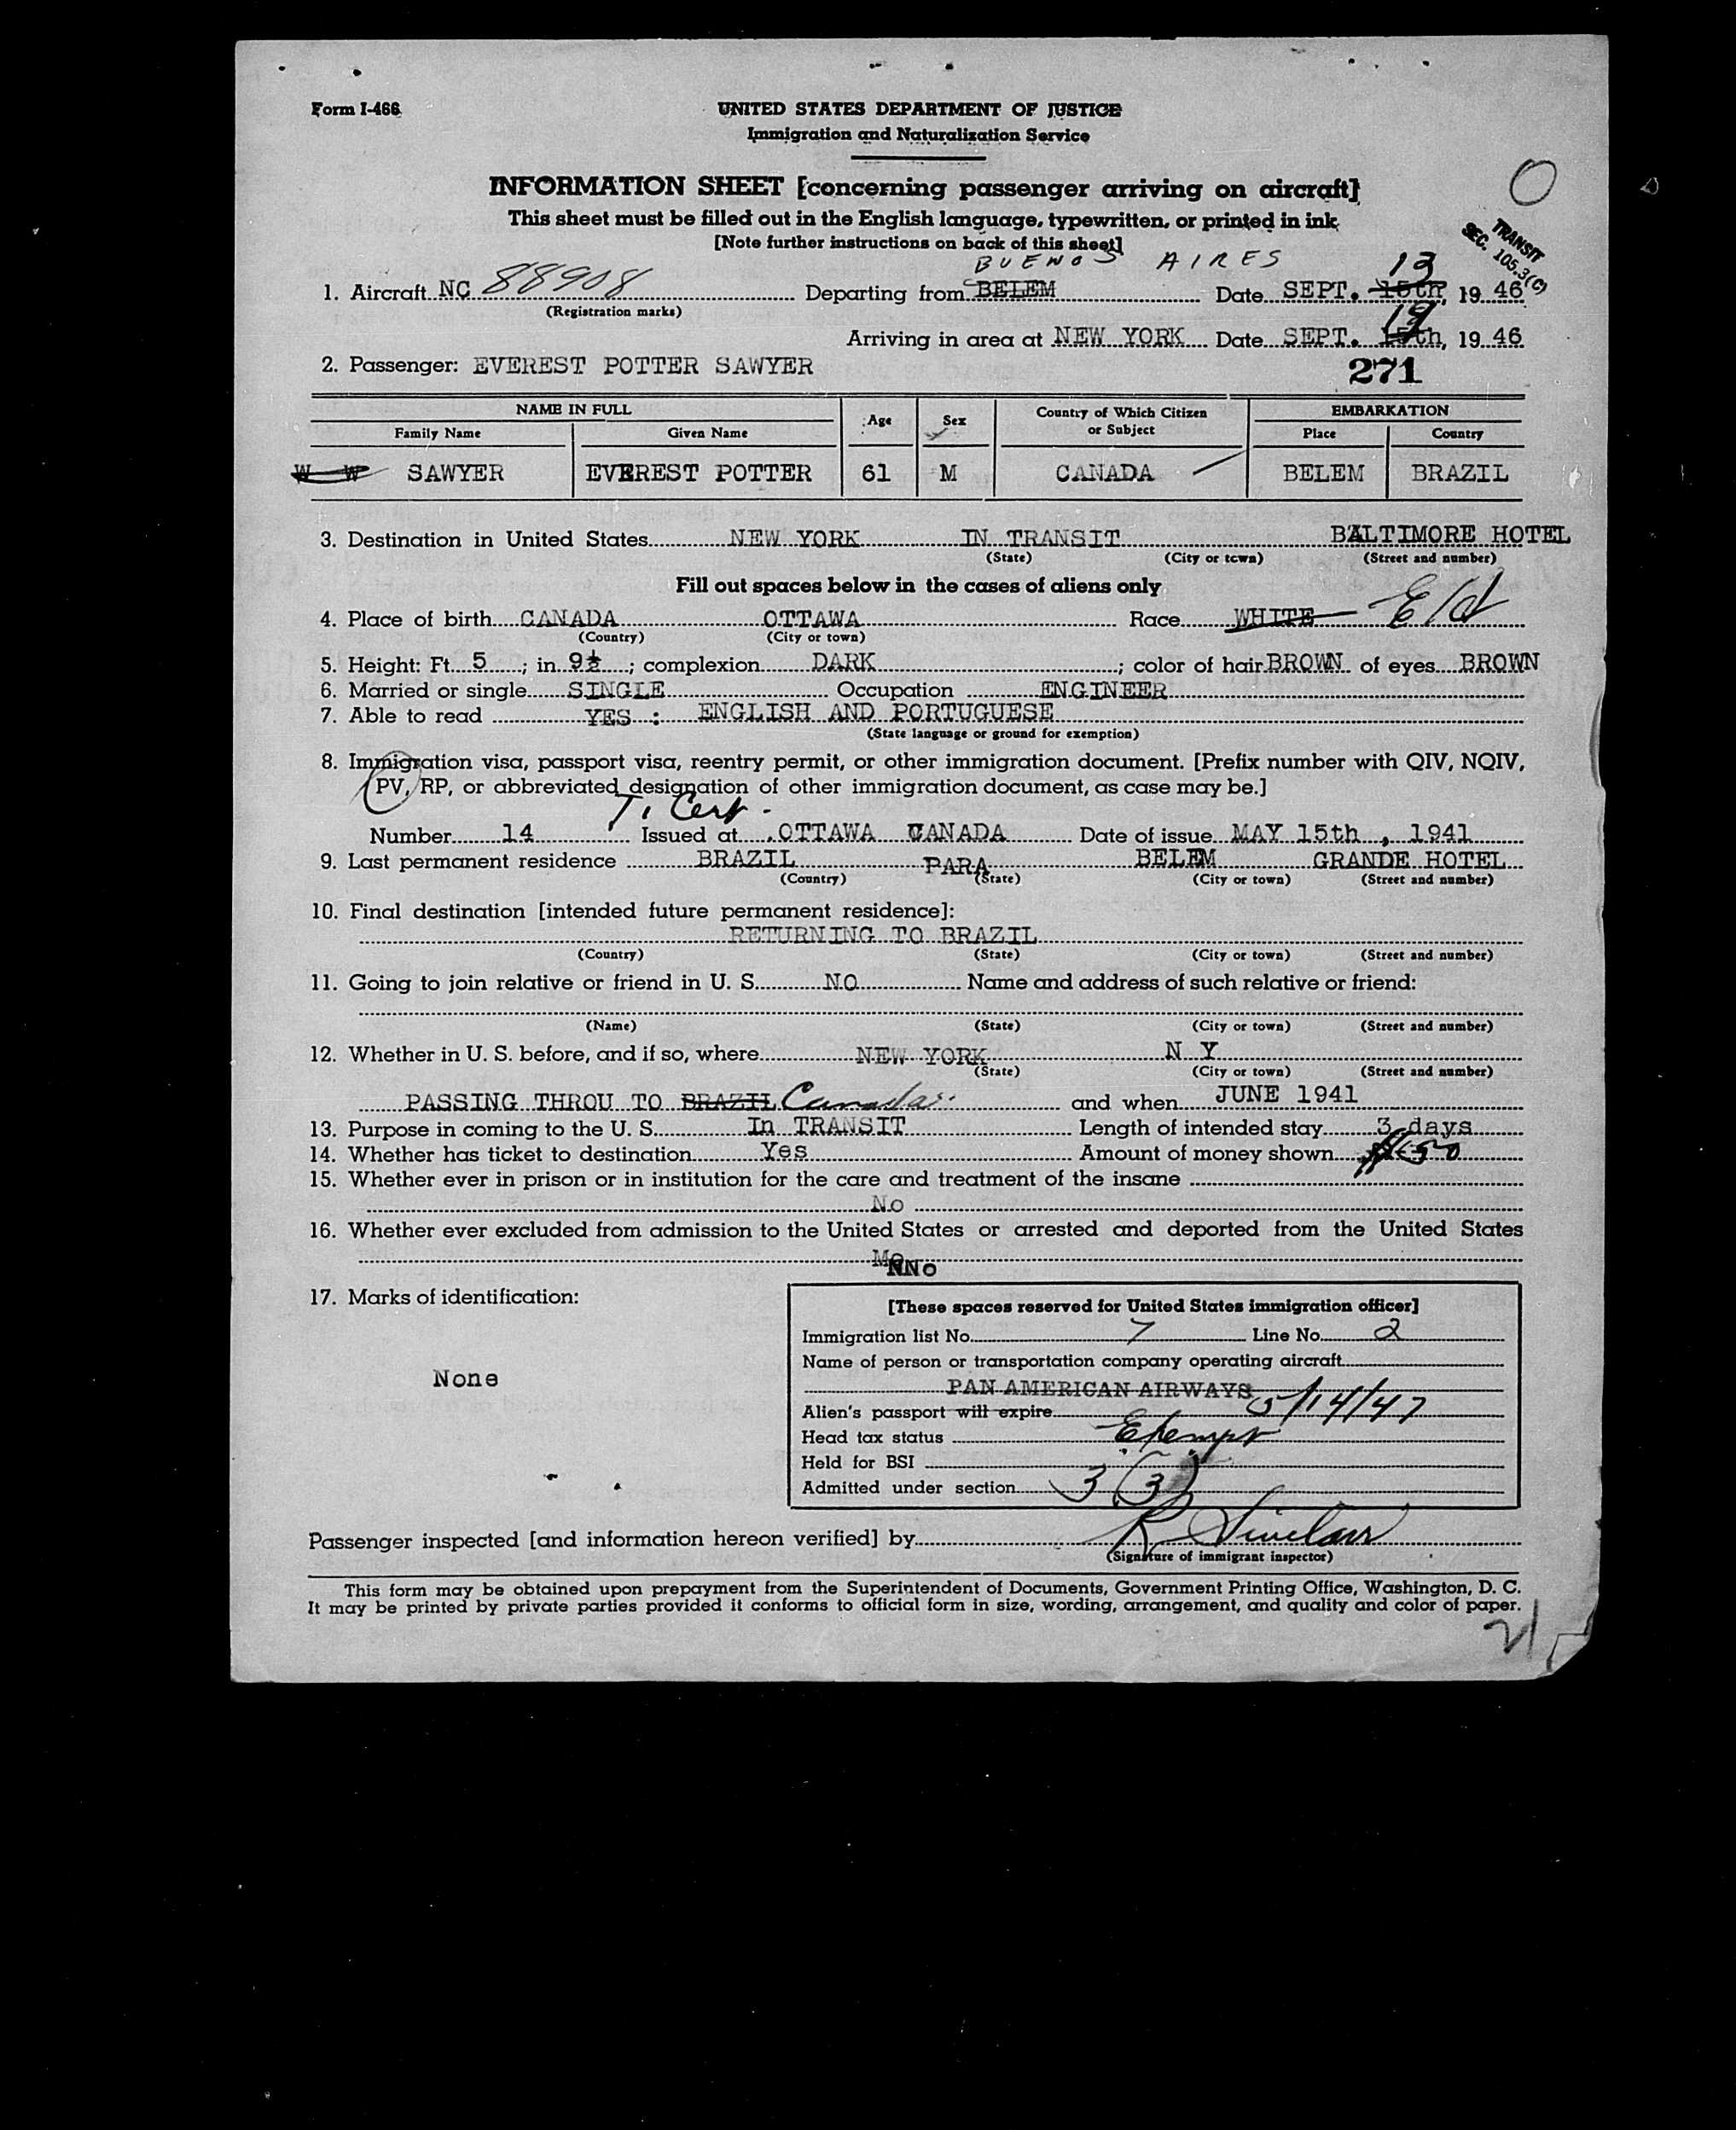 Form I-466
UNITED STATES DEPARTMENT OF JUSTICE
Immigration and Naturalization Service
INFORMATION SHEET [concerning passenger arriving on aircraft]
This sheet must be filled out in the English language, typewritten, or printed in ink
[Note further instructions on back of this sheet]
TRANSIT
SEC. 105.3(C)
BUENOS AIRES 13
1. Aircraft NC 88908 Departing from BELEM Date SEPT. 15th, 19 46
(Registration marks)
Arriving in area at NEW YORK Date SEPT. th, 19 46
2. Passenger: EVEREST POTTER SAWYER 271
NAME IN FULL Age Sex Country of Which Citizen or Subject EMBARKATION
Family Name Given Name Place Country
W W SAWYER EVEREST POTTER 61 M CANADA BELEM BRAZIL
3. Destination in United States NEW YORK IN TRANSIT BALTIMORE HOTEL
(State) (City or town) (Street and number)
Fill out spaces below in the cases of aliens only
4. Place of birth CANADA OTTAWA Race WHITE
(Country) (City or town)
5. Height: Ft. 5 ; in 9½ ; complexion DARK ; color of hair BROWN of eyes BROWN
6. Married or single SINGLE Occupation ENGINEER
7. Able to read YES : ENGLISH AND PORTUGUESE
(State language or ground for exemption)
8. Immigration visa, passport visa, reentry permit, or other immigration document. [Prefix number with QIV, NQIV,
PV, RP, or abbreviated designation of other immigration document, as case may be.]
T. Cert.
Number 14 Issued at OTTAWA CANADA Date of issue MAY 15th , 1941
9. Last permanent residence BRAZIL PARA BELEM GRANDE HOTEL
(Country) (State) (City or town) (Street and number)
10. Final destination [intended future permanent residence]:
RETURNING TO BRAZIL
(Country) (State) (City or town) (Street and number)
11. Going to join relative or friend in U. S. NO Name and address of such relative or friend:
(Name) (State) (City or town) (Street and number)
12. Whether in U. S. before, and if so, where NEW YORK N Y
(State) (City or town) (Street and number)
PASSING THROU TO BRAZIL Canada and when JUNE 1941
13. Purpose in coming to the U. S. In TRANSIT Length of intended stay 3 days
14. Whether has ticket to destination Yes Amount of money shown 50
15. Whether ever in prison or in institution for the care and treatment of the insane
No
16. Whether ever excluded from admission to the United States or arrested and deported from the United States
NNo
17. Marks of identification:
None
[These spaces reserved for United States immigration officer]
Immigration list No. 7 Line No. 2
Name of person or transportation company operating aircraft
PAN AMERICAN AIRWAYS
Alien's passport will expire 5/14/47
Head tax status Exempt
Held for BSI
Admitted under section 3 (3)
Passenger inspected [and information hereon verified] by R Sinclair
(Signature of immigrant inspector)
This form may be obtained upon prepayment from the Superintendent of Documents, Government Printing Office, Washington, D. C.
It may be printed by private parties provided it conforms to official form in size, wording, arrangement, and quality and color of paper.
21